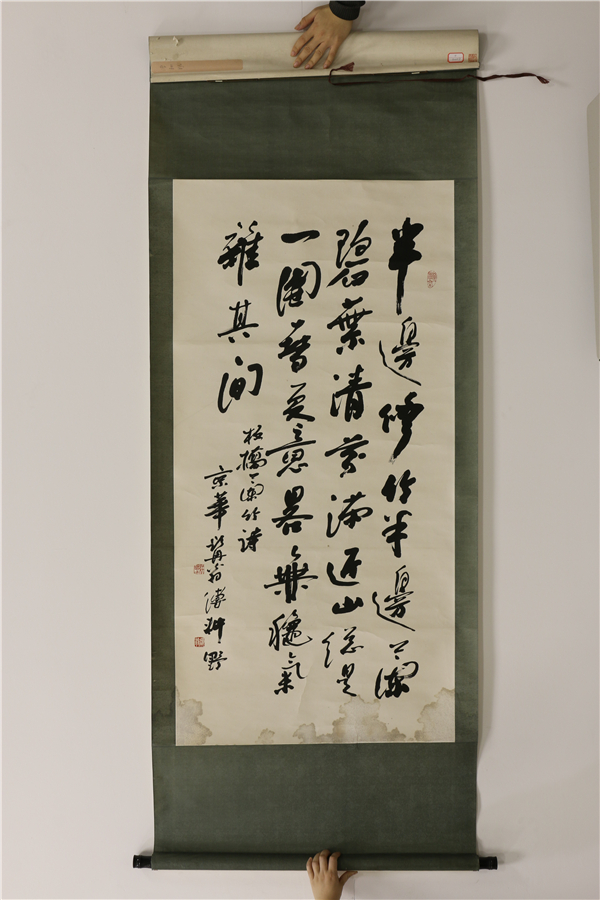 半邊修竹半邊蘭
碧葉清芬滿近山總是
一團春夏意畧無龝氣
雜其間
板橋蘭竹詩
京華翁傅耕野